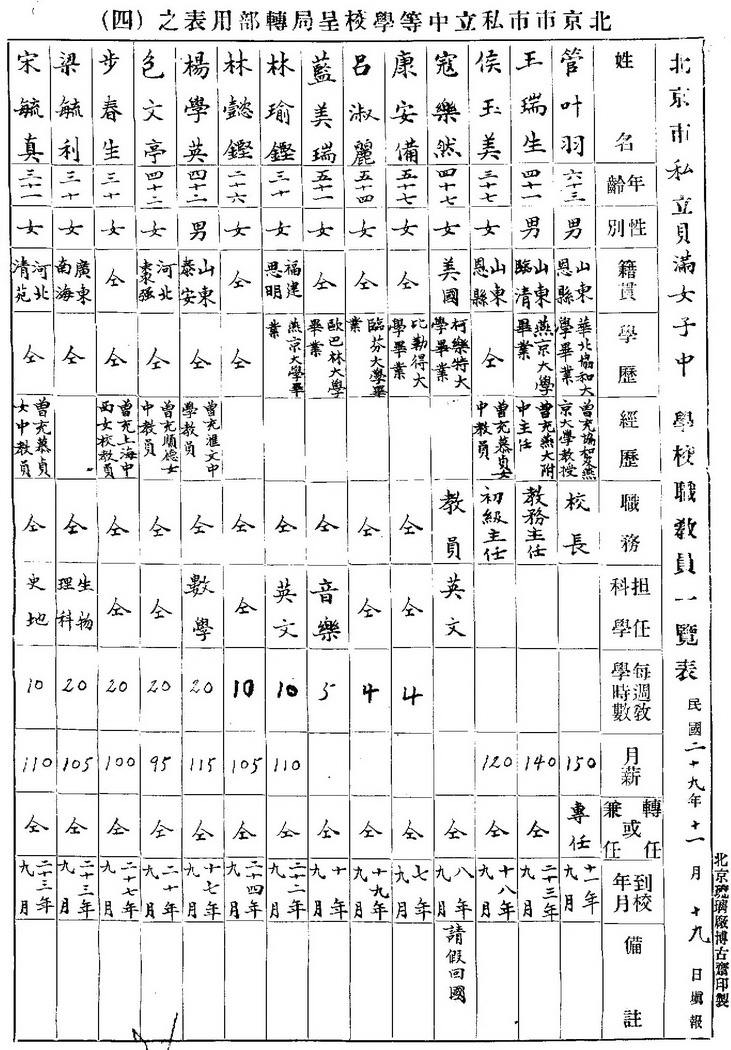 北京市市私立中等學校呈局轉部用表之(四)
北京市私立貝滿女子中 學校職教員一覽表 民國二十九年十一月十九日填報
北京琉璃廠博古齋印製
姓名 年齡 性別 籍貫 學歷 經歷 職務 担任科學 每週教學時數 月薪 轉任或兼任 到校年月 備註
管叶羽 六十三 男 山東恩縣 華北協和大學畢業 曾充協和及燕京大學教授 校長 150 專任 十一年九月
王瑞生 四十一 男 山東臨清 燕京大學畢業 曾充燕大附中主任 教務主任 140 仝 二十三年九月
侯玉美 三十七 女 山東恩縣 仝 曾充慕貞女中教員 初級主任 120 仝 十八年九月
寇樂然 四十七 女 美國 柯樂特大學畢業 教員 英文 仝 八年九月 請假回國
康安備 五十七 女 仝 比勒得大學畢業 仝 仝 4 仝 七年九月
呂淑麗 五十四 女 仝 臨芬大學畢業 仝 仝 4 仝 十九年九月
藍美瑞 五十一 女 仝 歐巴林大學畢業 仝 音樂 5 仝 十年九月
林瑜鏗 三十 女 福建思明 燕京大學畢業 仝 英文 10 110 仝 二十二年九月
林懿鏗 二十六 女 仝 仝 仝 仝 10 105 仝 二十四年九月
楊學英 四十二 男 山東泰安 仝 曾充滙文中學教員 仝 數學 20 115 仝 十七年九月
包文亭 四十二 女 河北棗強 仝 曾充順德女中教員 仝 仝 20 95 仝 二十年九月
步春生 三十 女 仝 仝 曾充上海中西女校教員 仝 仝 20 100 仝 二十七年九月
梁毓利 三十 女 廣東南海 仝 仝 生物理科 20 105 仝 二十三年九月
宋毓真 三十一 女 河北清苑 仝 曾充慕貞女中教員 仝 史地 10 110 仝 二十三年九月